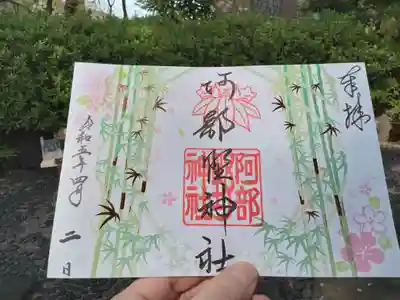 奉拝
阿部野神社
阿部野神社
令和五年四月二日